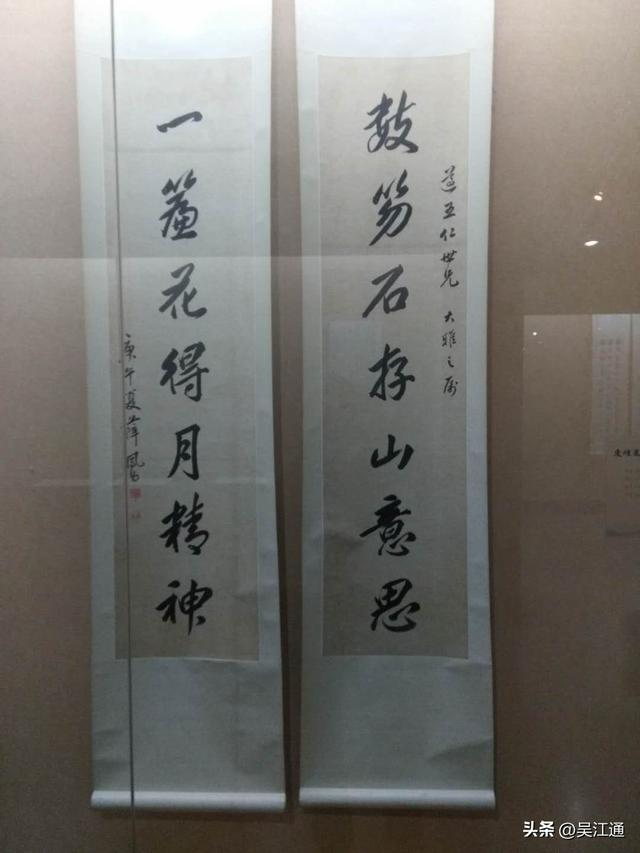 遵五仁世兄 大雅之属
数笏石存山意思
一簾花得月精神
庚午夏薛鳳昌
头条 @吴江通